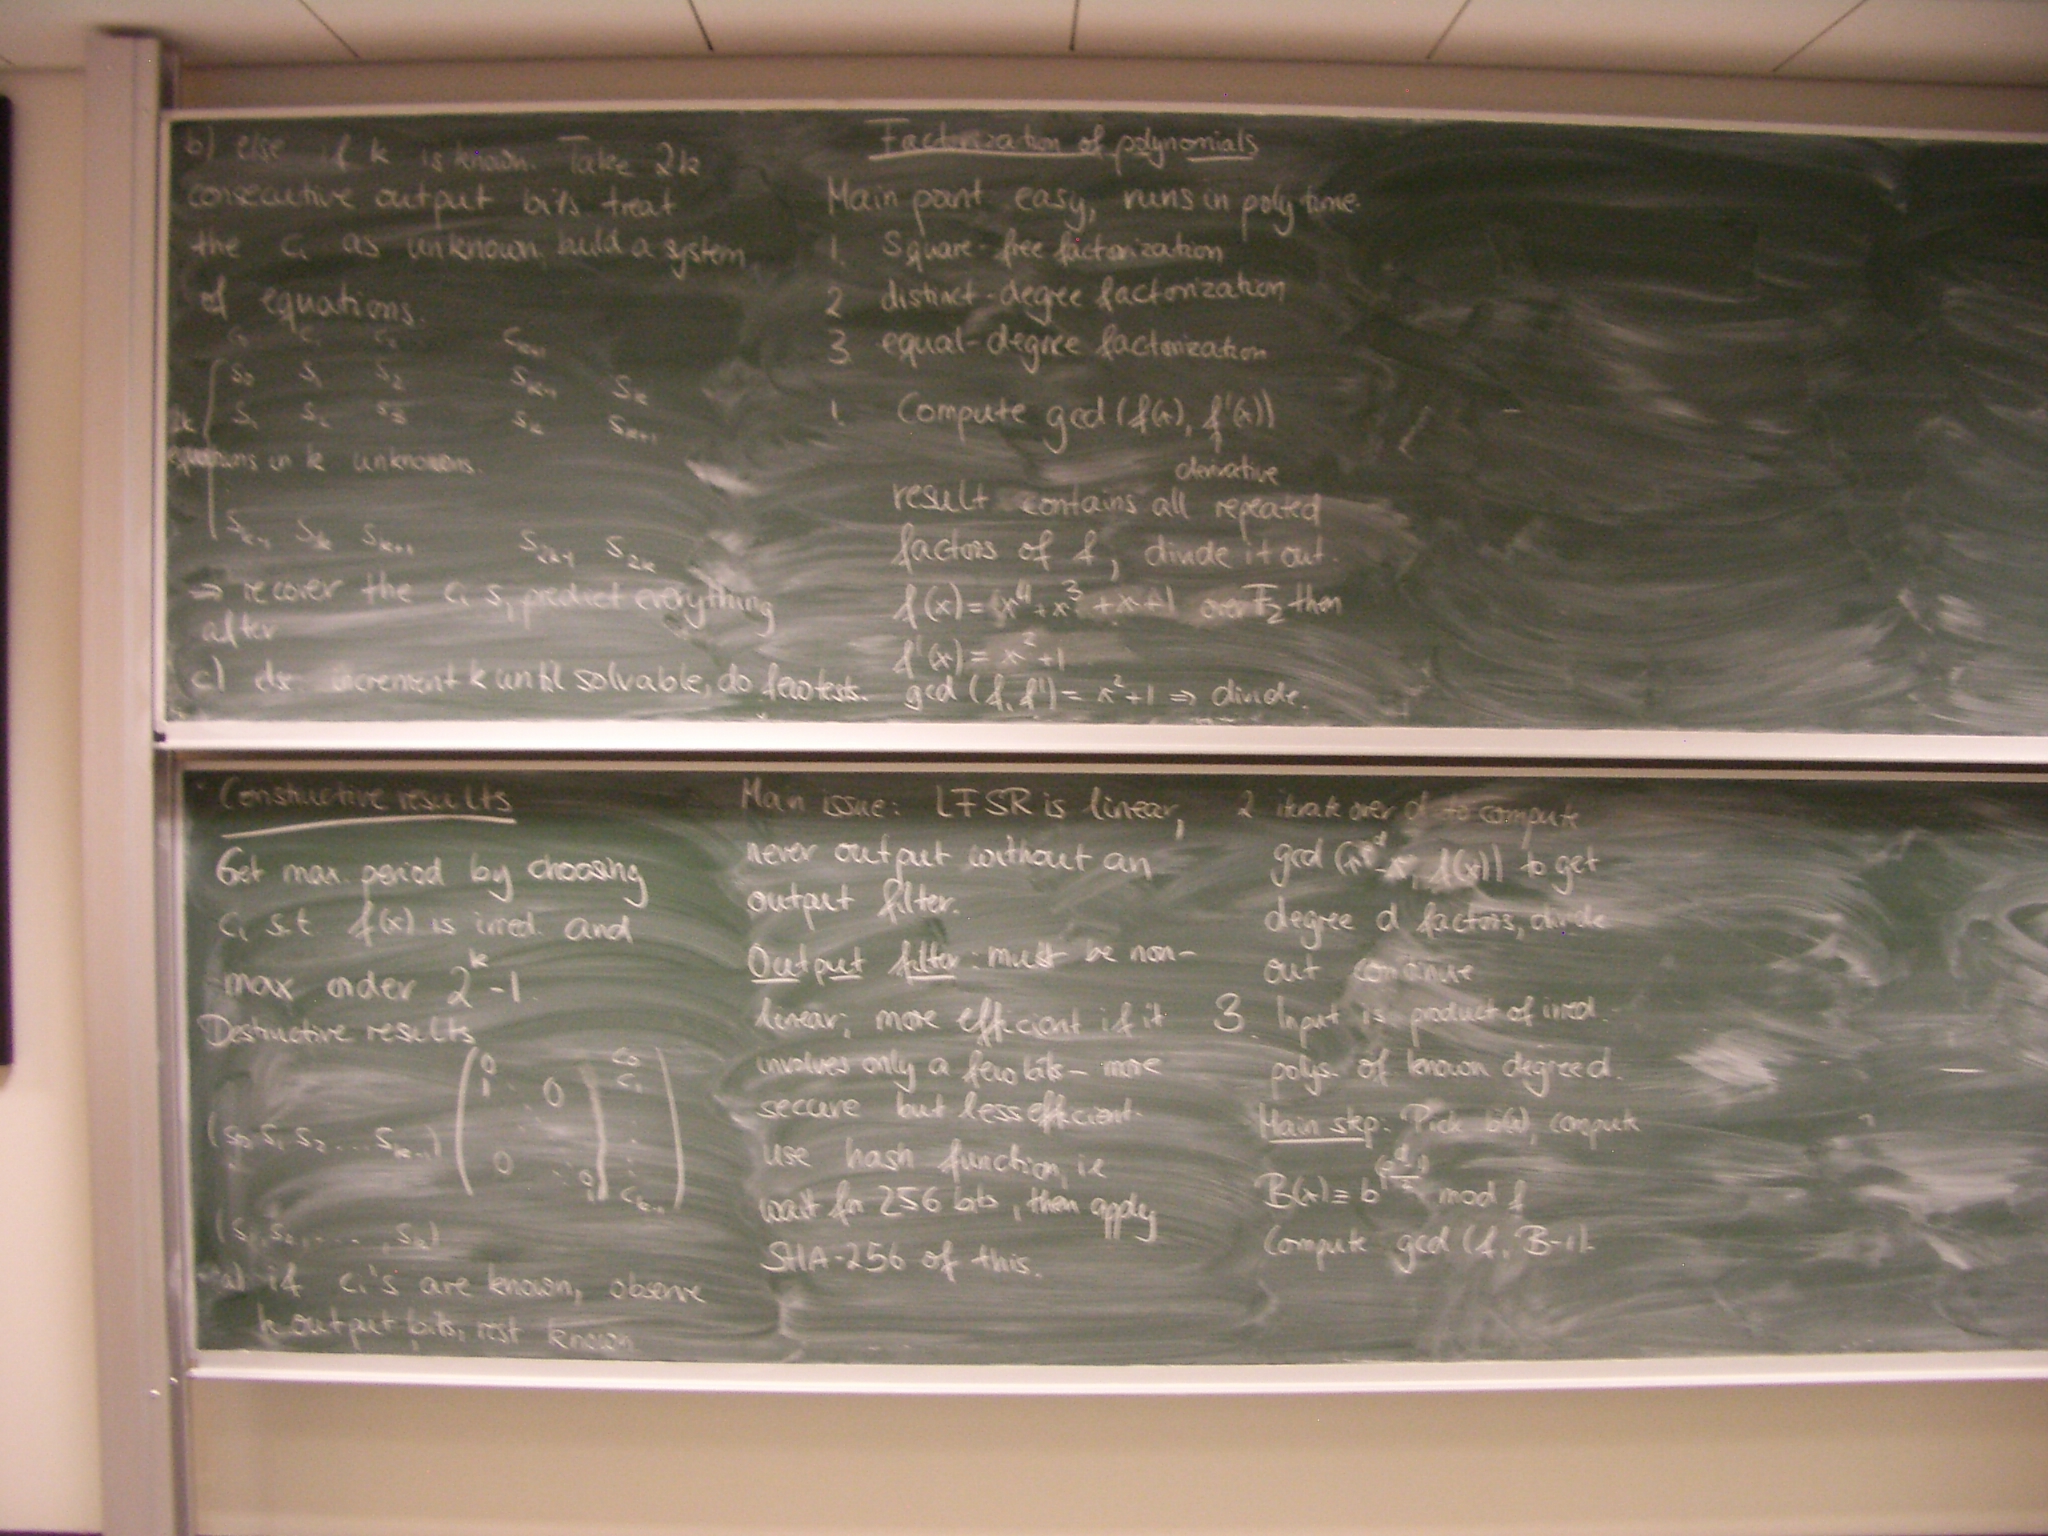 b) else if k is known. Take 2k
consecutive output bits treat
the ci as unknown, build a system
of equations.
c0 c1 c2 ck-1
s0 s1 s2 sk-1 sk
s1 s2 s3 sk sk+1
equations in k unknowns.
sk-1 sk sk+1 s2k-1 s2k
⇒ recover the ci s, predict everything
after
c) increment k until solvable, do few tests.
Factorization of polynomials
Main point easy, runs in poly time.
1. Square-free factorization
2 distinct-degree factorization
3 equal-degree factorization
1. Compute gcd (f(x), f'(x))
↑
derivative
result contains all repeated
factors of f, divide it out.
f(x) = x^4 + x^3 + x + 1 over F2 then
f'(x) = x^2+1
gcd (f, f') = x^2+1 ⇒ divide.
Constructive results
Get max. period by choosing
ci s.t f(x) is irred. and
max order 2^k-1.
Destructive results
0 c0
1 0 c1
(s0, s1, s2 ... sk-1)
0 0
1 ck-1
(s1, s2, ...., sk)
a) if ci's are known, observe
k output bits, rest known
Main issue: LFSR is linear,
never output without an
output filter.
Output filter: must be non-
linear; more efficient if it
involves only a few bits – more
secure but less efficient.
use hash function, ie
wait for 256 bits, then apply
SHA-256 of this.
2 iterate over d to compute
gcd (f(x)) to get
degree d factors, divide
out continue
3. Input is product of irred.
polys. of known degree d.
Main step: Pick b(x), compute
B(x) ≡ b mod f
Compute gcd (f, B-1).